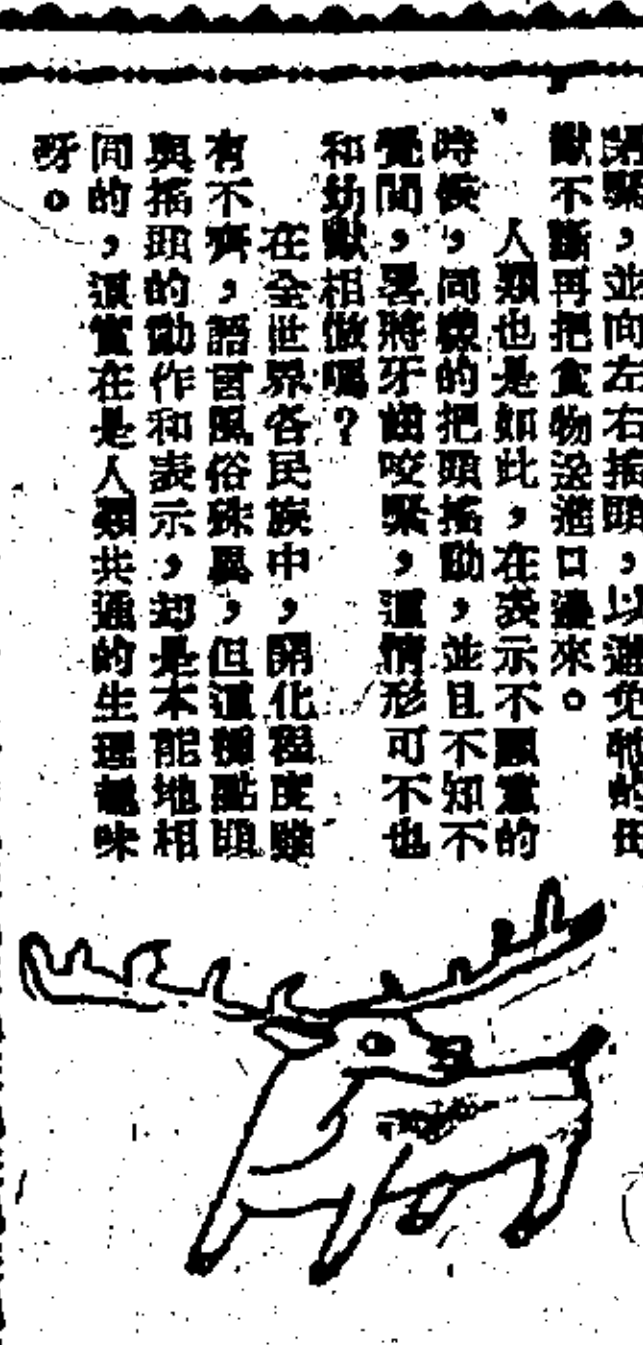 閉緊，並向左右搖頭，以避免牠的母
獸不斷再把食物送進口邊來。
人類也是如此，在表示不願意的
時候，同樣的把頭搖動，並且不知不
覺間，畧將牙齒咬緊，這情形可不也
和幼獸相倣嗎？
在全世界各民族中，開化程度雖
有不齊，語言風俗殊異，但這種點頭
與搖頭的動作和表示，却是本能地相
同的，這實在是人類共通的生理趣味
呀。